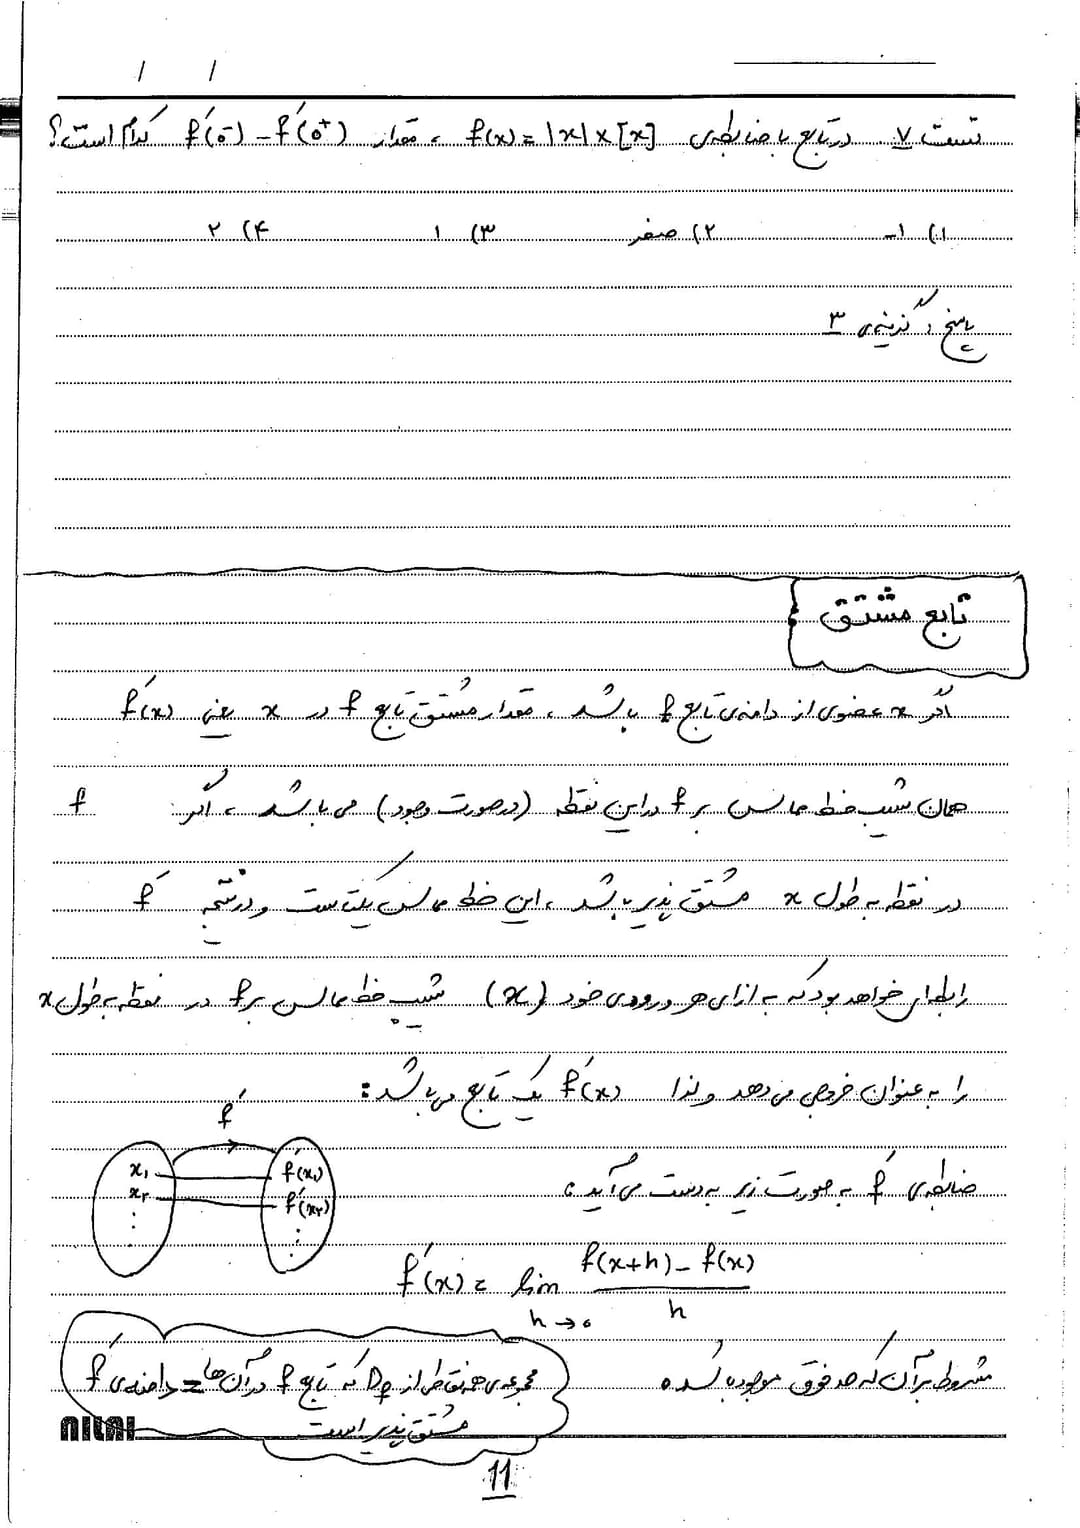 تست ۷. در تابع با ضابطه‌ی f(x) = |x| × [x] ، مقدار f'(0⁻) - f'(0⁺) کدام است؟
۱) -۱ ۲) صفر ۳) ۱ ۴) ۲
پاسخ: گزینه‌ی ۳
تابع مشتق:
اگر x عضوی از دامنه‌ی تابع f باشد، مقدار مشتق تابع f در x یعنی f'(x)
همان شیب خط مماس بر f در این نقطه (در صورت وجود) می باشد، اگر f
در نقطه به طول x مشتق پذیر باشد، این خط مماس یکتاست و در نتیجه f'
رابطه‌ای خواهد بود که به ازای هر ورودی خود (x) شیب خط مماس بر f در نقطه به طول x
را به عنوان خروجی می دهد ولذا f'(x) یک تابع می باشد:
f'
x₁ f'(x₁)
x₂ f'(x₂)
⋮ ⋮
ضابطه‌ی f' به صورت زیر به دست می آید:
f'(x) = lim h→0 (f(x+h) - f(x)) / h
مشروط بر آن که حد فوق موجود باشد.
دامنه‌ی f' = مجموعه‌ی همه نقاطی از D_f که تابع f در آن ها
مشتق پذیر است
NILAI
11